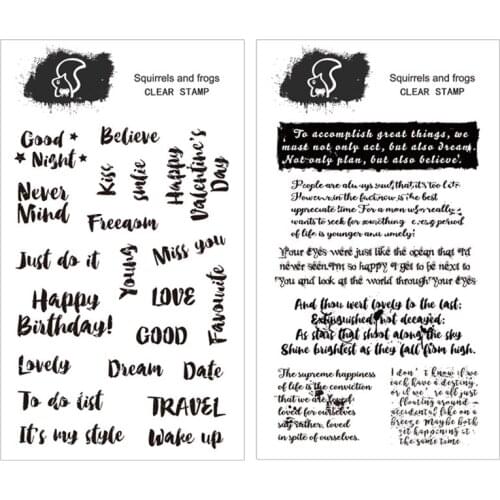 Squirrels and frogs
CLEAR STAMP
Good
Night
Believe
Kiss
smile
Happy
Valentine's
Day
Never
Mind
Freedom
Just do it
Young
Miss you
Happy
Birthday!
LOVE
Favourite
GOOD
Lovely
Dream
Date
To do list
TRAVEL
It's my style
Wake up
Squirrels and frogs
CLEAR STAMP
To accomplish great things, we
must not only act, but also dream.
Not only plan, but also believe.
People are always said, that it's too late
However, in the fact, now is the best
appreciate time. For a man who really
wants to seek for something every period
of life is younger and timely.
Your eyes were just like the ocean that I'd
never seen. I'm so happy I get to be next to
you and look at the world through your eyes
And thou wert lovely to the last:
Extinguished, not decayed:
As stars that shoot along the sky
Shine brightest as they fall from high.
The supreme happiness
of life is the conviction
that we are loved
loved for ourselves
say rather, loved
in spite of ourselves.
I don't know if we
each have a destiny,
or if we're all just
floating around
accidental like on a
breeze Maybe both
it happening at
the same time